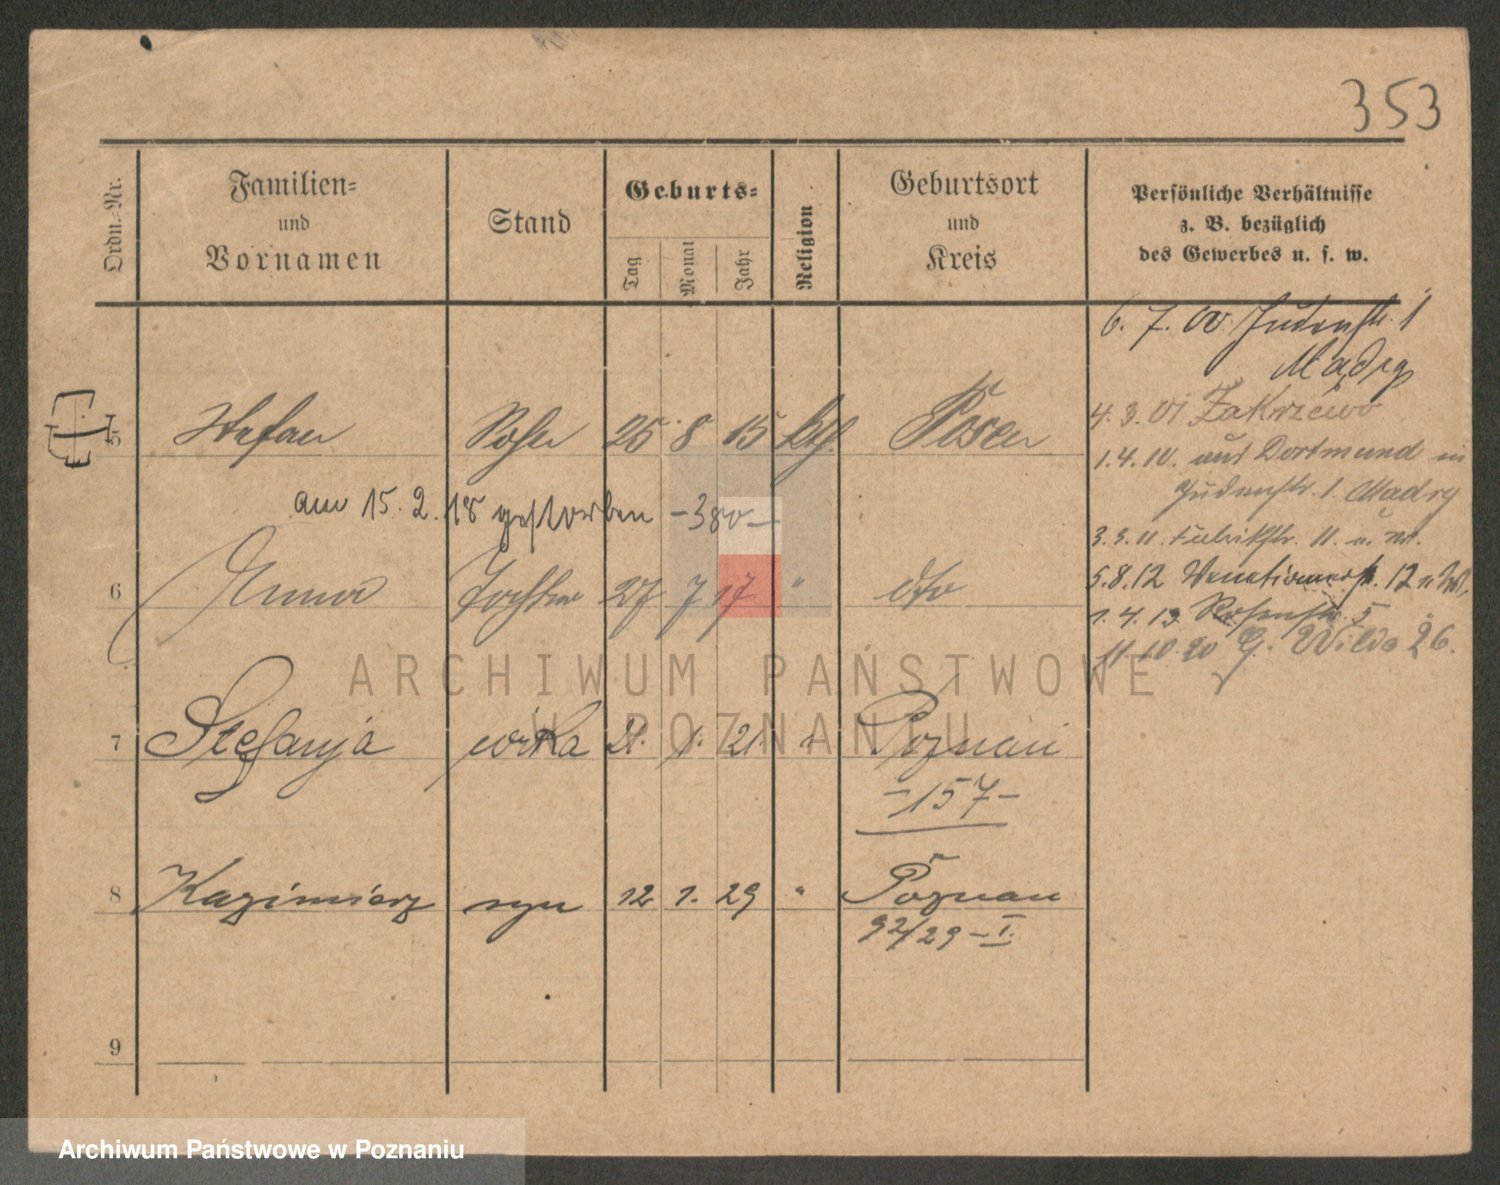 353
Ordn.-Nr.
Familien-
und
Vornamen
Stand
Geburts-
Tag
Monat
Jahr
Religion
Geburtsort
und
Kreis
Persönliche Verhältnisse
z. B. bezüglich
des Gewerbes u. s. w.
6. 7. 00 Judenstr. 1
4. 3. 01 Zakrzewo
1. 4. 10. aus Dortmund in
Judenstr. 1.
3. 3. 11. Fabrikstr. 11.
5. 8. 12 12
1. 4. 13 Rosenstr. 5
11 10 20 G. Wilda 26.
5 Stefan Sohn 25 8 15 kth. Posen
am 15. 2. 18 gestorben -380-
6 Anna Tochter 27 7 17 " dto
7 Stefanja córka 21. 1. 21 " Poznań
-157-
8 Kazimierz syn 12 1. 29 " Poznań
92/29 - I.
9
ARCHIWUM PAŃSTWOWE
W POZNANIU
Archiwum Państwowe w Poznaniu